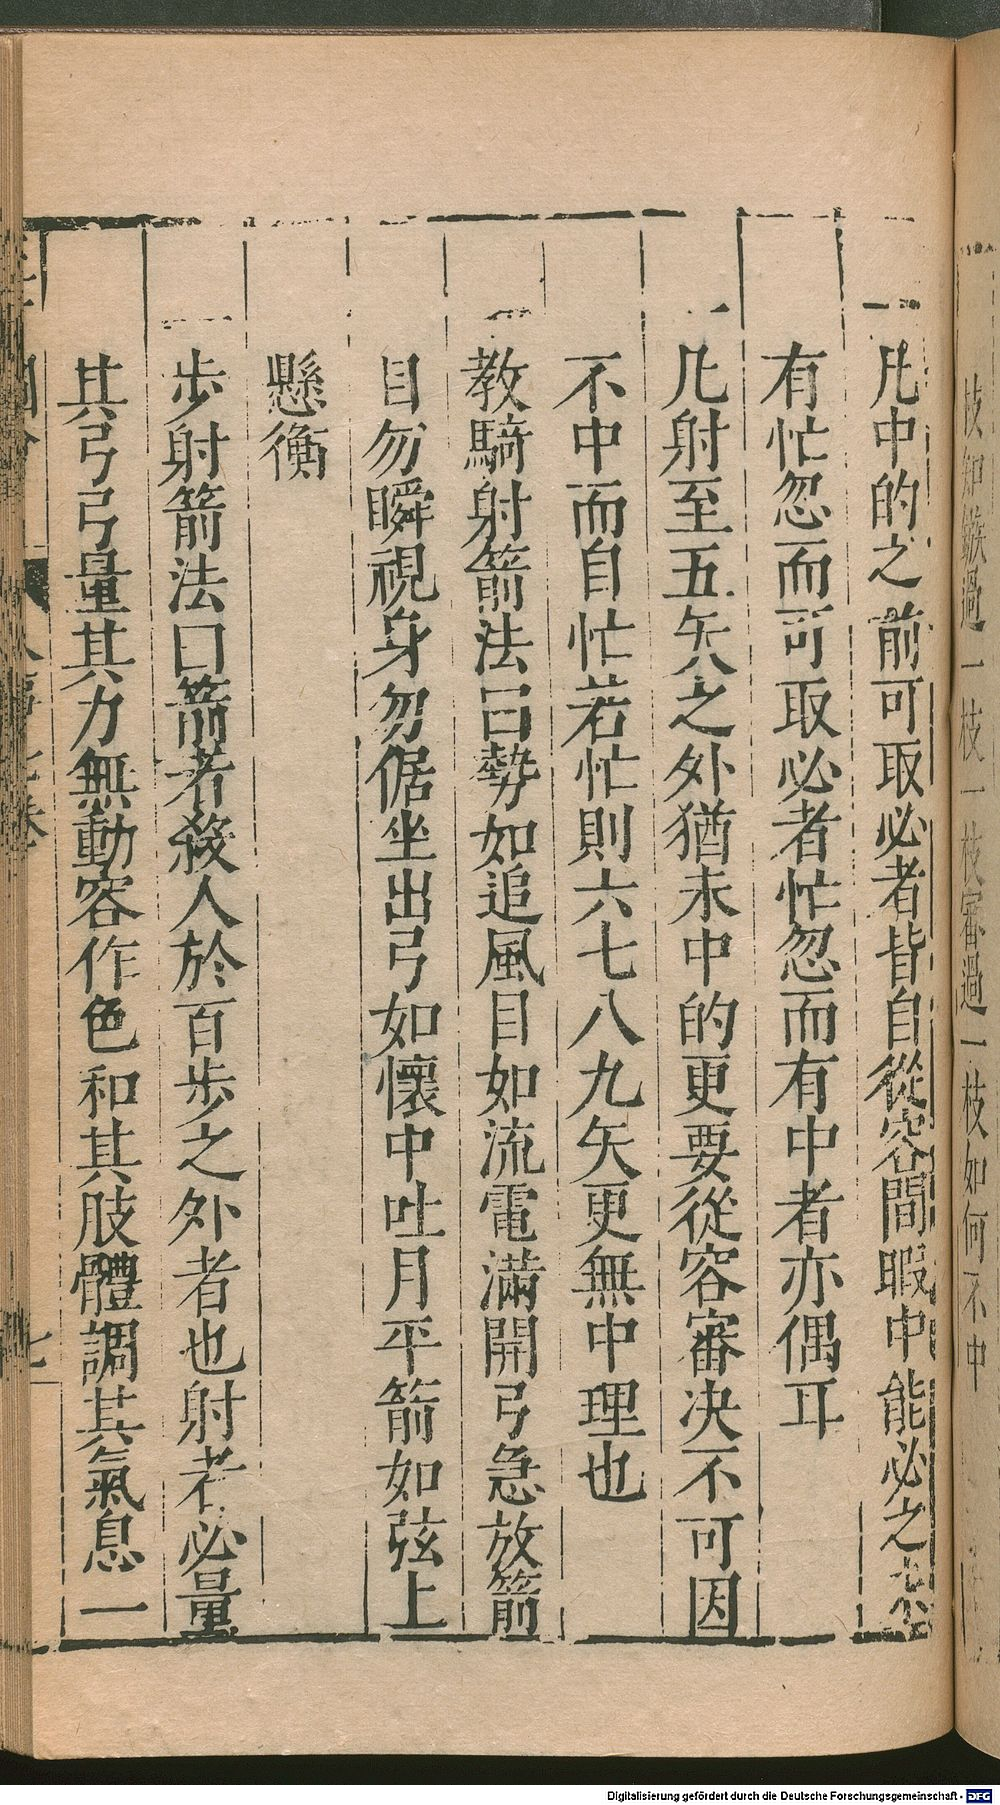 一凡中的之前可取必者皆自從容間暇中能必之未
有忙忽而可取必者忙忽而有中者亦偶耳
一凡射至五矢之外猶未中的更要從容審决不可因
不中而自忙若忙則六七八九矢更無中理也
一教騎射箭法曰勢如追風目如流電滿開弓急放箭
目勿瞬視身勿倨坐出弓如懷中吐月平箭如弦上
懸衡
一步射箭法曰箭者殺人於百步之外者也射者必量
其弓弓量其力無動容作色和其肢體調其氣息一
七
枝知鏃過一枝一枝審過一枝如何不中
Digitalisierung gefördert durch die Deutsche Forschungsgemeinschaft - DFG